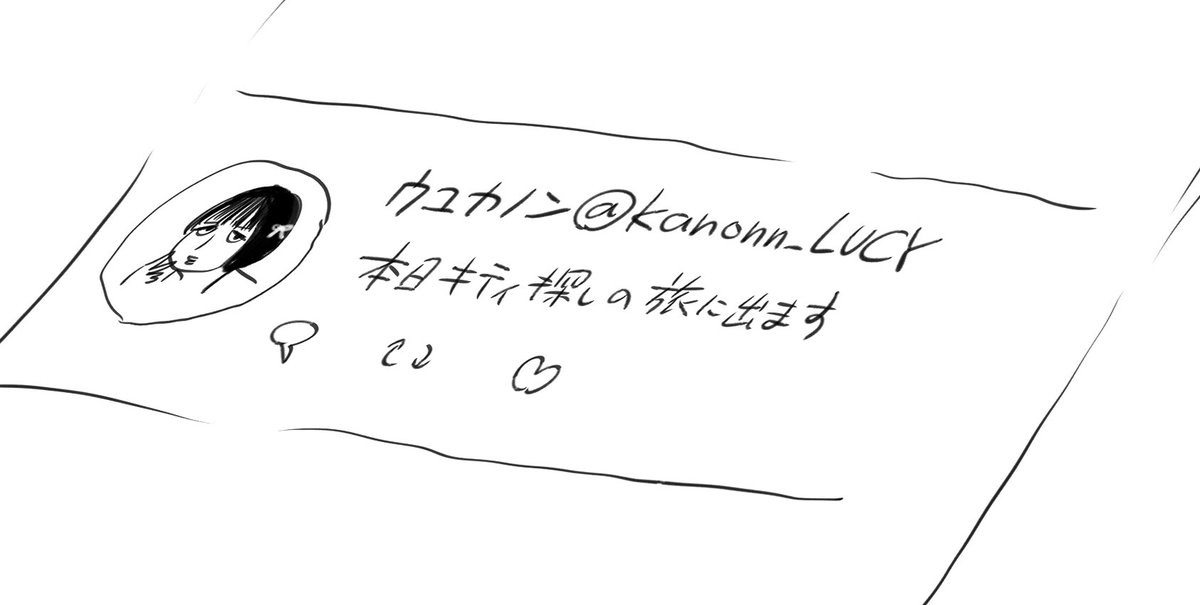 ウユカノン@kanonn_LUCY
本日キティ探しの旅に出ます